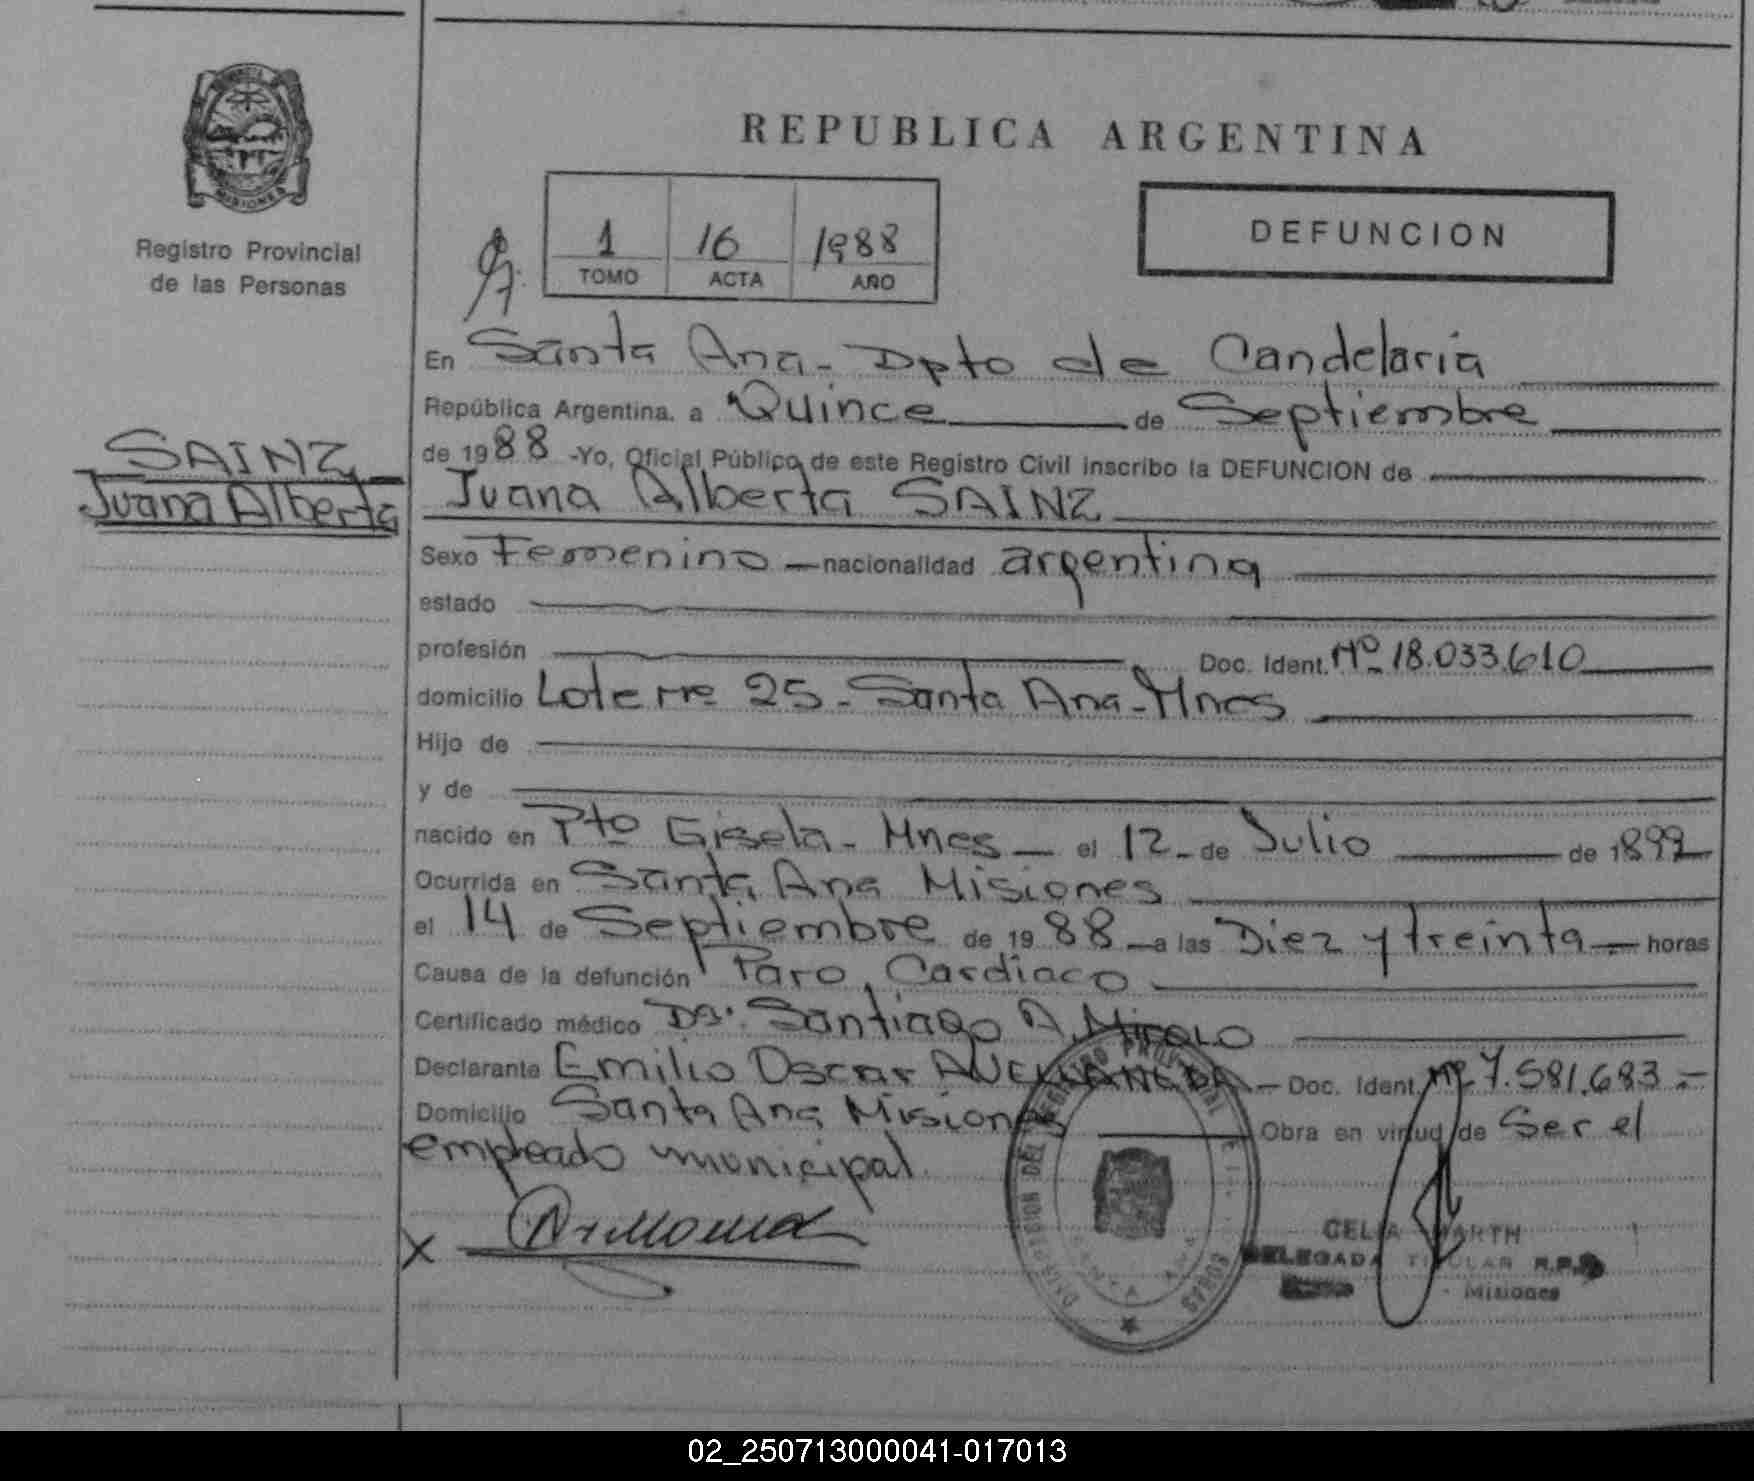 MISIONES
Registro Provincial
de las Personas
SAINZ
Juana Alberta
REPUBLICA ARGENTINA
1 16 1988
TOMO ACTA AÑO
DEFUNCION
En Santa Ana - Dpto de Candelaria
República Argentina, a Quince de Septiembre
de 1988 -Yo, Oficial Público de este Registro Civil inscribo la DEFUNCION de
Juana Alberta SAINZ
Sexo Femenino - nacionalidad argentina
estado
profesión Doc. Ident. Nº 18.033.610
domicilio Lote Nº 25 - Santa Ana - Mnes
Hijo de
y de
nacido en Pto Gisela - Mnes - el 12 - de Julio de 1892
Ocurrida en Santa Ana Misiones
el 14 de Septiembre de 1988 - a las Diez y treinta - horas
Causa de la defunción Paro Cardiaco
Certificado médico Dr. Santiago A.
Declarante Emilio Oscar AVELLANEDA - Doc. Ident. Nº 7.581.683 -
Domicilio Santa Ana Misiones Obra en virtud de Ser el
empleado municipal
X
CELIA MARTH
DELEGADA TITULAR R.P.P.
Misiones
02_250713000041-017013